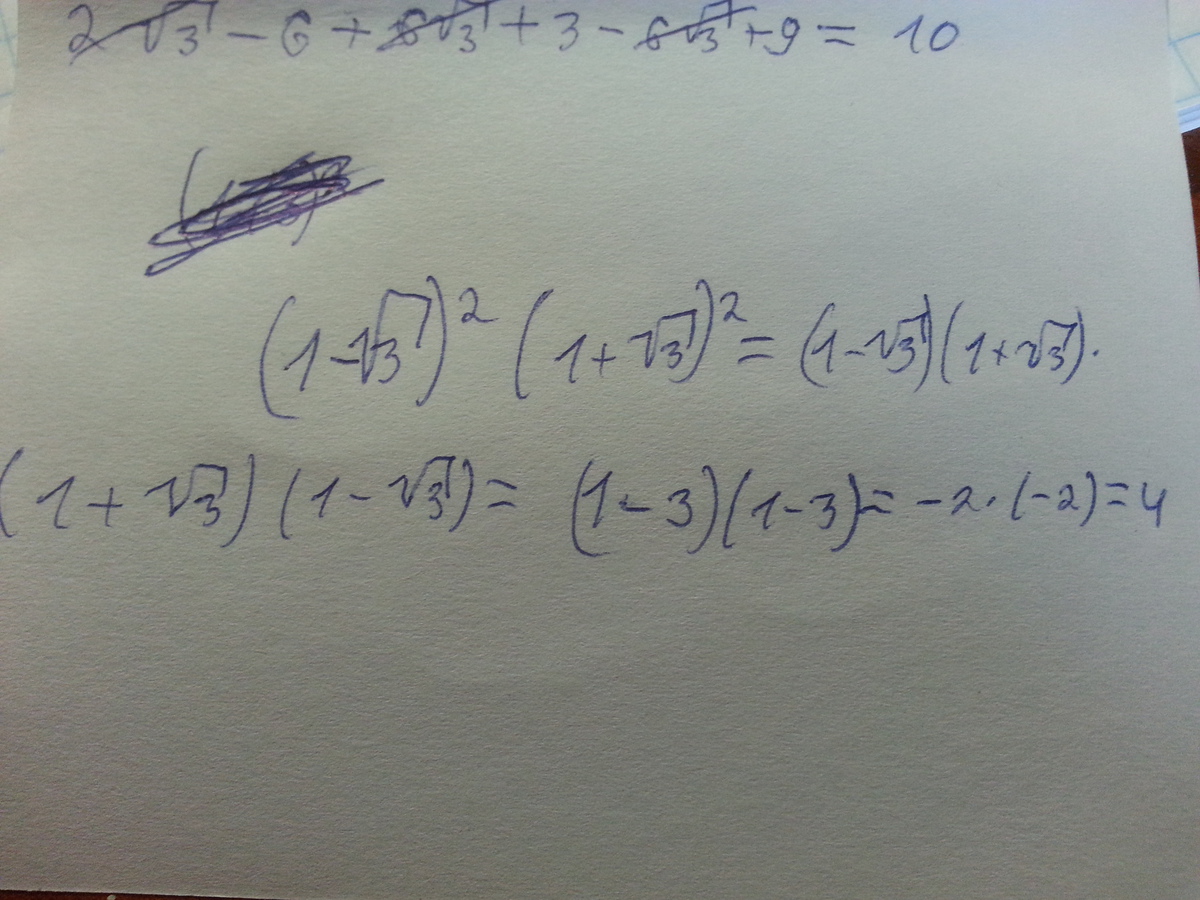 2√3 - 6 + 6√3 + 3 - 6√3 + 9 = 10
(1-√3)² (1+√3)² = (1-√3)(1+√3)·
(1+√3)(1-√3) = (1-3)(1-3) = -2·(-2) = 4